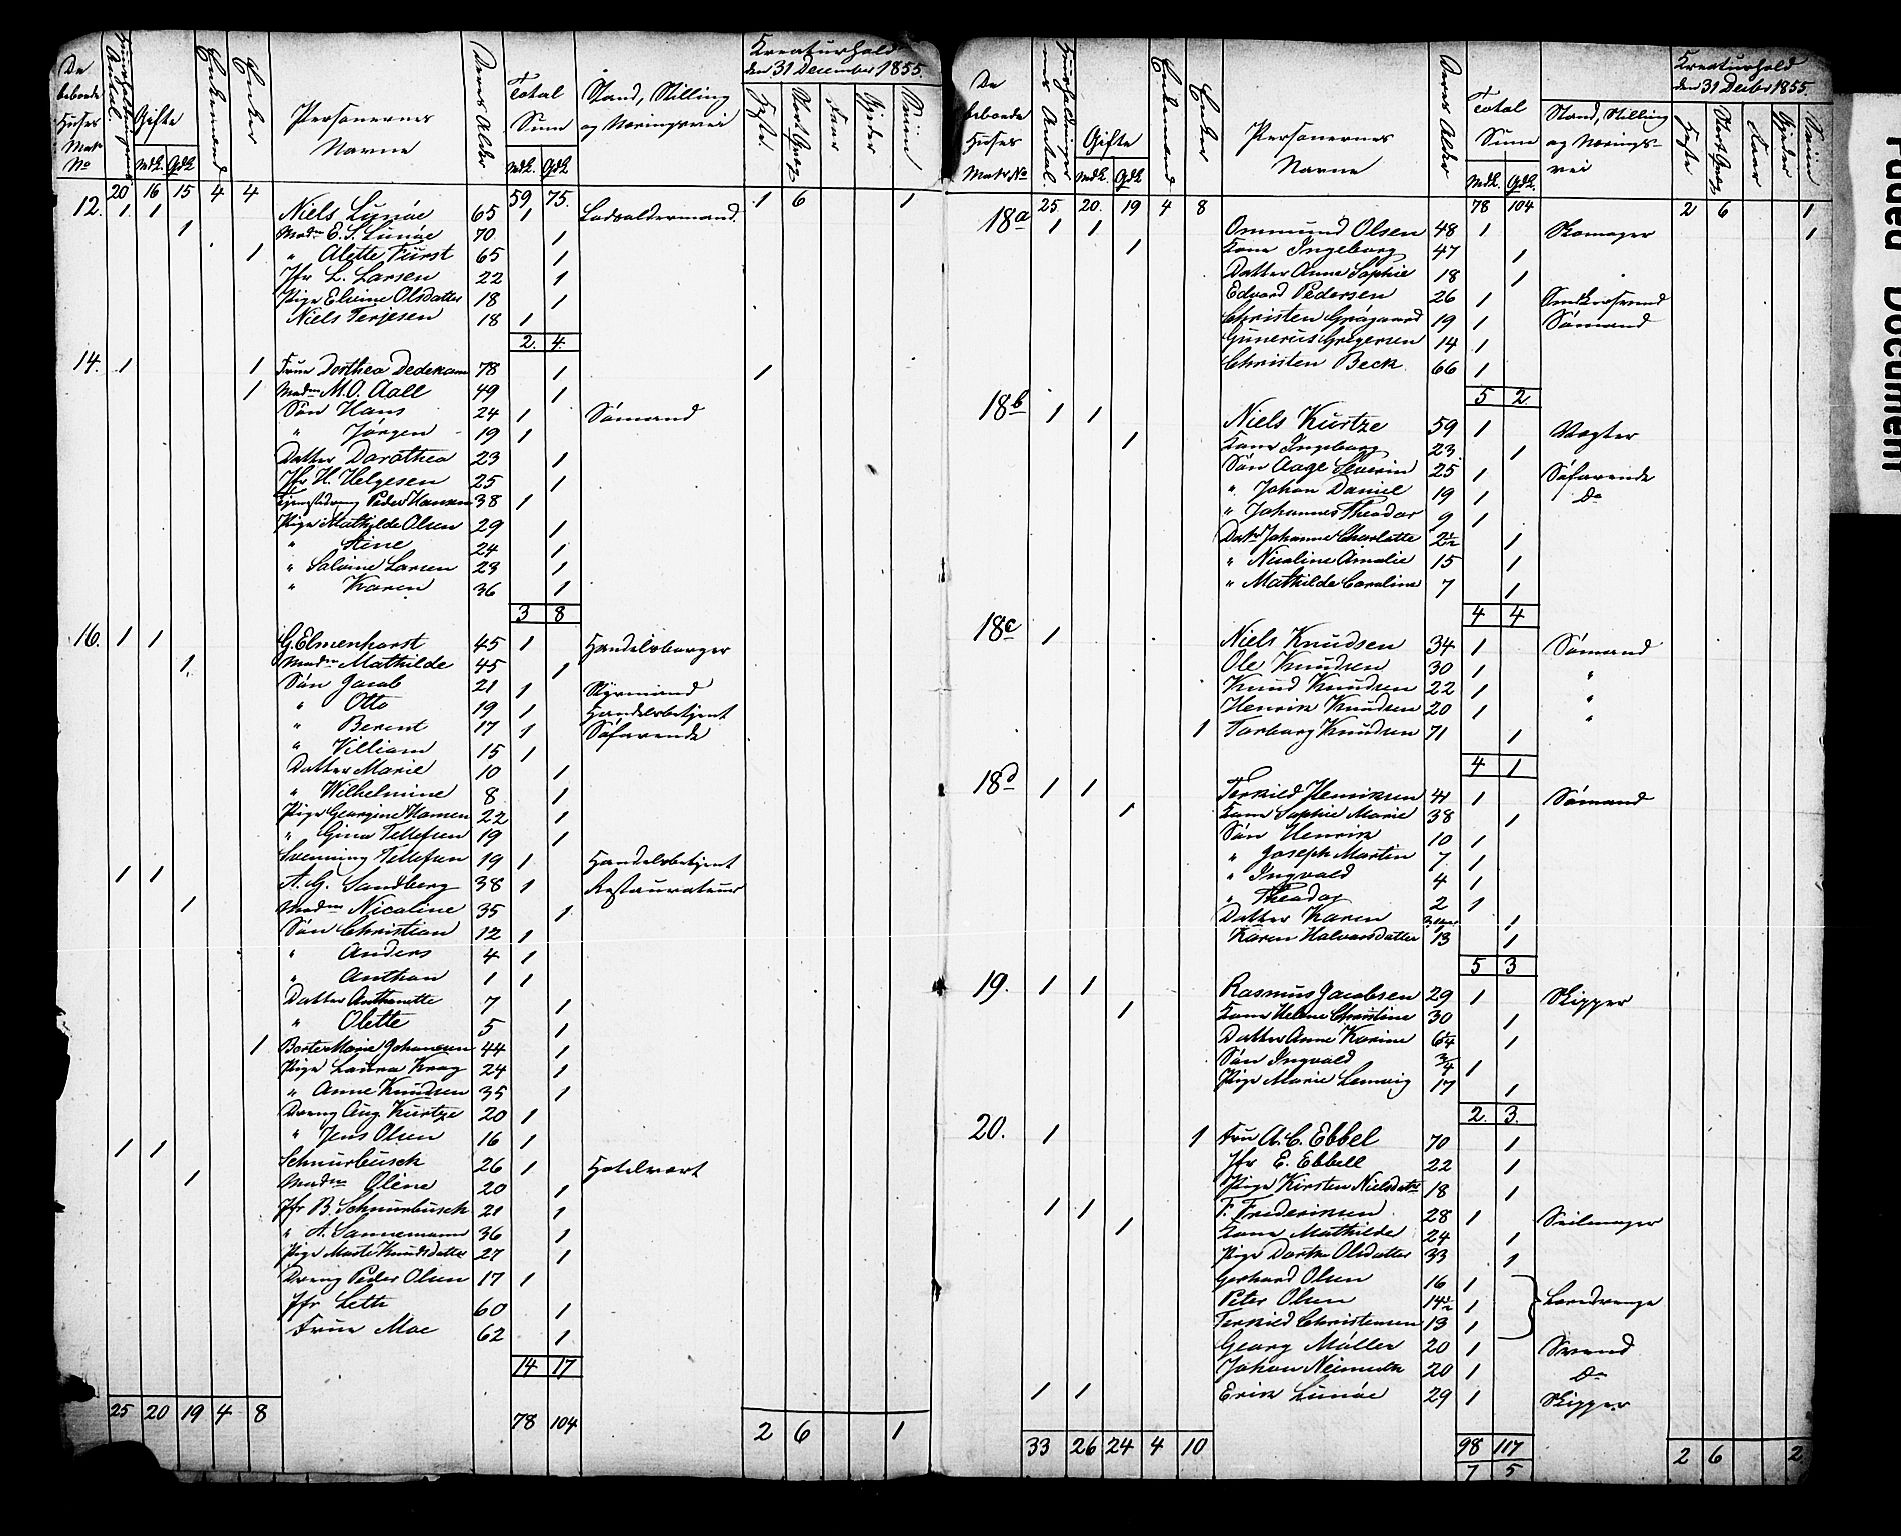 De beboede Huses Matr No | Huusholdningernes Antal. | Gifte Mdk. Qdk | Enkemænd | Enker | Personernes Navne | Deres Alder | Total Sum Mdk. Qdk | Stand, Stilling og Næringsvei | Kreaturhold den 31 December 1855. Heste. Stort Qvæg Faar Gjeder Sviin
20 16 15 4 4 59 75. 1 6 1
12. 1 1 Niels Lunöe 65 1 Ladsoldermand.
1 Madm E. S. Lunöe 70 1
1 " Alette Fürst 65 1
Jfr L. Larsen 22 1
Pige Elvine Olsdatter 18 1
Niels Terjesen 18 1
2. 4.
14. 1 1 Frue Dorthea Dedekam 78 1 1
1 Madm M. O. Aall 49 1
Søn Hans 24 1 Sømand
" Jørgen 19 1
Datter Dorothea 23 1
Jfr H. Helgesen 25 1
Tjenestedreng Peder Hansen 38 1
Pige Mathilde Olsen 29 1
" Stine 24 1
" Salvine Larsen 23 1
" Karen 36 1
3 8
16. 1 1 G. Elmenhorst 45 1 Handelsborger
1. Madm Mathilde 45 1
Søn Jacob 21 1 Styrmand
" Otto 19 1 Handelsbetjent
" Berent 17 1 Søfarende
" Villiam 15 1
Datter Marie 10 1
" Wilhelmine 8 1
Pige Georgine Hansen 22 1
" Gina Tellefsen 19 1
Svenning Tellefsen 19 1 Handelsbetjent
1 1 A. G. Sandberg 38 1 Restaurateur
1 Madm Nicoline 35 1
Søn Christian 12 1
" Anders 4 1
" Anthon 1 1
Datter Anthonette 7 1
" Olette 5 1
1 Berte Marie Johansen 44 1
Pige Laura Krog 24 1
" Anne Knudsen 35 1
Dreng Aug. Kurtze 20 1
" Jens Olsen 16 1
1 1 Schnurbusch 26 1 Hotelvært
1 Madm Oline 20 1
Jfr B. Schnurbusch 21 1
" A. Sannemann 36 1
Pige Marte Knudsdatter 27 1
Dreng Peder Olsen 17 1
Jfr Leth 60 1
Frue Moe 62 1
14 17
25 20 19 4 8 78 104 2 6 1
De beboede Huses Matr No | Huusholdningernes Antal. | Gifte Mdk. Qdk. | Enkemænd | Enker | Personernes Navne | Deres Alder | Total Sum Mdk. Qdk. | Stand, Stilling og Næringsvei | Kreaturhold den 31 Decbr 1855. Heste Stort Qvæg Faar Gjeder Sviin
25. 20. 19 4 8 78 104 2 6 1
18a 1 1 Ommund Olsen 48 1 Skomager 1
1 Kone Ingeborg 47 1
Datter Anne Sophie 18 1
Edvard Pedersen 26 1
Christen Grøgaard 19 1 Sømand
Gunerius Gregersen 14 1
Christen Beck 66 1
5 2.
18b 1 1 Niels Kurtze 59 1 Vægter
1 Kone Ingeborg 23 1
Søn Aage Severin 25 1 Søfarende
" Johan Daniel 19 1 Do
" Johannes Theodor 9 1
Datr Johanne Charlotte 2½ 1
" Nicoline Amalie 15 1
" Mathilde Caroline 7 1
4 4
18c 1 Niels Knudsen 34 1 Sømand
Ole Knudsen 30 1 "
Knud Knudsen 22 1 "
Henrik Knudsen 20 1 "
1 Torborg Knudsen 71 1
4 1
18d 1 1 Terkild Henriksen 41 1 Sømand
1 Kone Sophie Marie 38 1
Søn Henrik 10 1
" Joseph Martin 7 1
" Ingvald 4 1
" Theodor 2 1
Datter Karen 1
Karen Halvorsdatter 13 1
5 3
19. 1 1 Rasmus Jacobsen 29 1 Skipper
1 Kone Helene Christine 30 1
Datter Anne Karine 6¼ 1
Søn Ingvald ¾ 1
Pige Marie Lemvig 17 1
2. 3.
20. 1 1 Fru A. C. Ebbel 70 1
Jfr E. Ebbell 22 1
Pige Kirsten Nielsdatr 18 1
1 1 F. Frideriksen 28 1 Seilmager
1 Kone Mathilde 24 1
Pige Dorthe Olsdatter 33 1
Gerhard Olsen 16 1
Peter Olsen 14½ 1 Læredrenge
Terkild Christensen 13 1
Georg Møller 20 1 Svend
Johan 20 1 Do
1 1 Erik Lunöe 29 1 Skipper
33 26 24 4 10 98 117 2 6 2
7 5
Faded Document